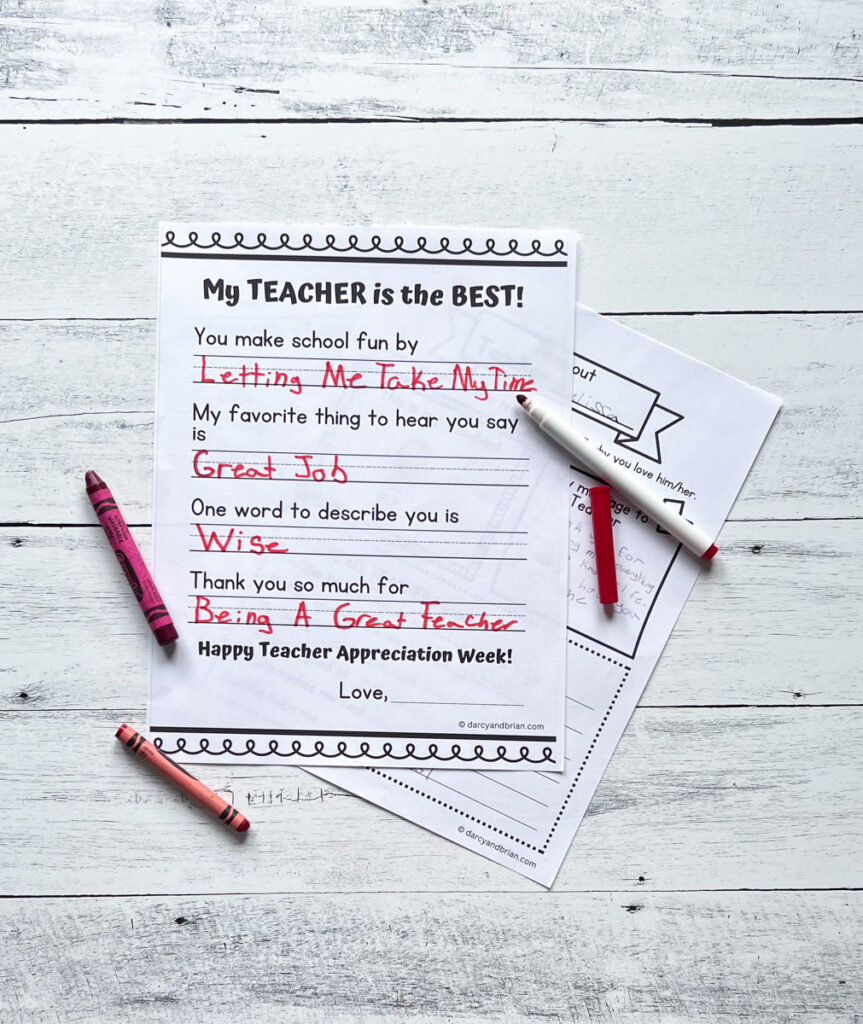 My TEACHER is the BEST!
You make school fun by
Letting Me Take My Time
My favorite thing to hear you say
is
Great Job
One word to describe you is
Wise
Thank you so much for
Being A Great Teacher
Happy Teacher Appreciation Week!
Love,
© darcyandbrian.com
out
elissa
by you love him/her.
message to
Teacher
for
everything
life.
you
me
© darcyandbrian.com